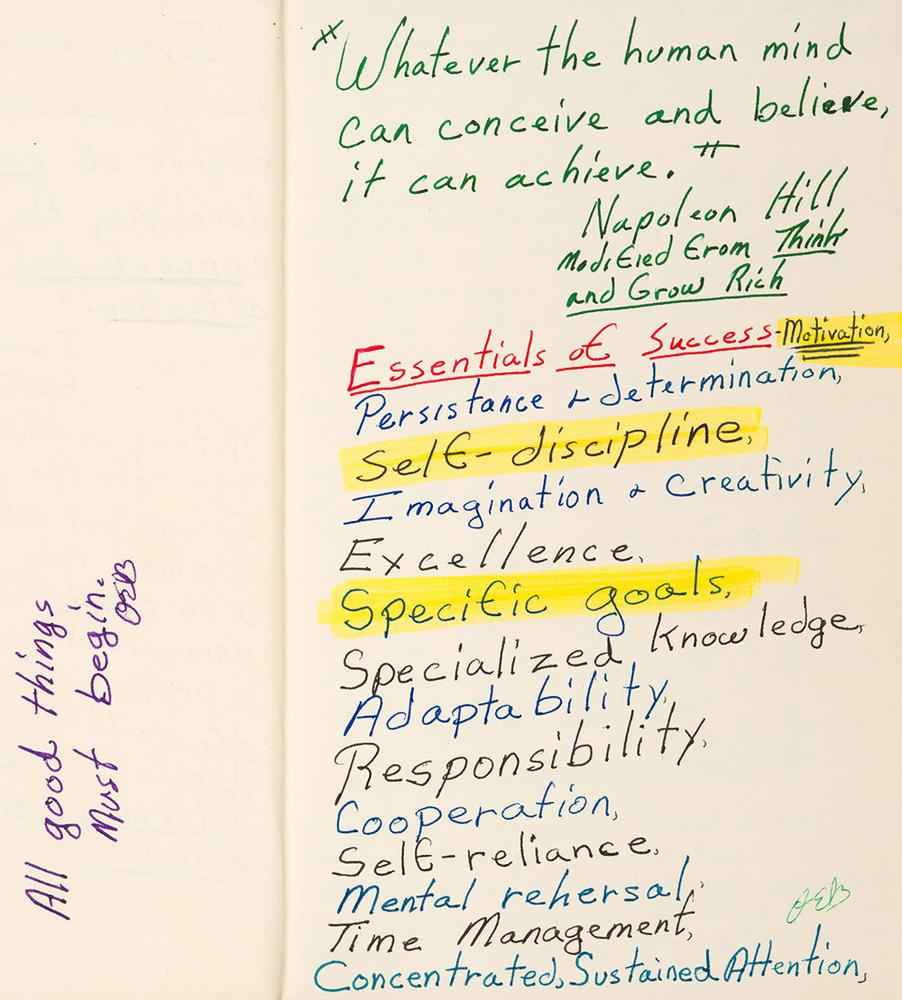 "Whatever the human mind
can conceive and believe,
it can achieve."
Napoleon Hill
Modified from Think
and Grow Rich
Essentials of Success-Motivation,
Persistance & determination,
Self-discipline,
Imagination & Creativity,
Excellence,
Specific goals,
Specialized Knowledge,
Adaptability,
Responsibility,
Cooperation,
Self-reliance,
Mental rehersal,
Time Management,
OEB
Concentrated, Sustained Attention,
All good things
Must begin.
OEB